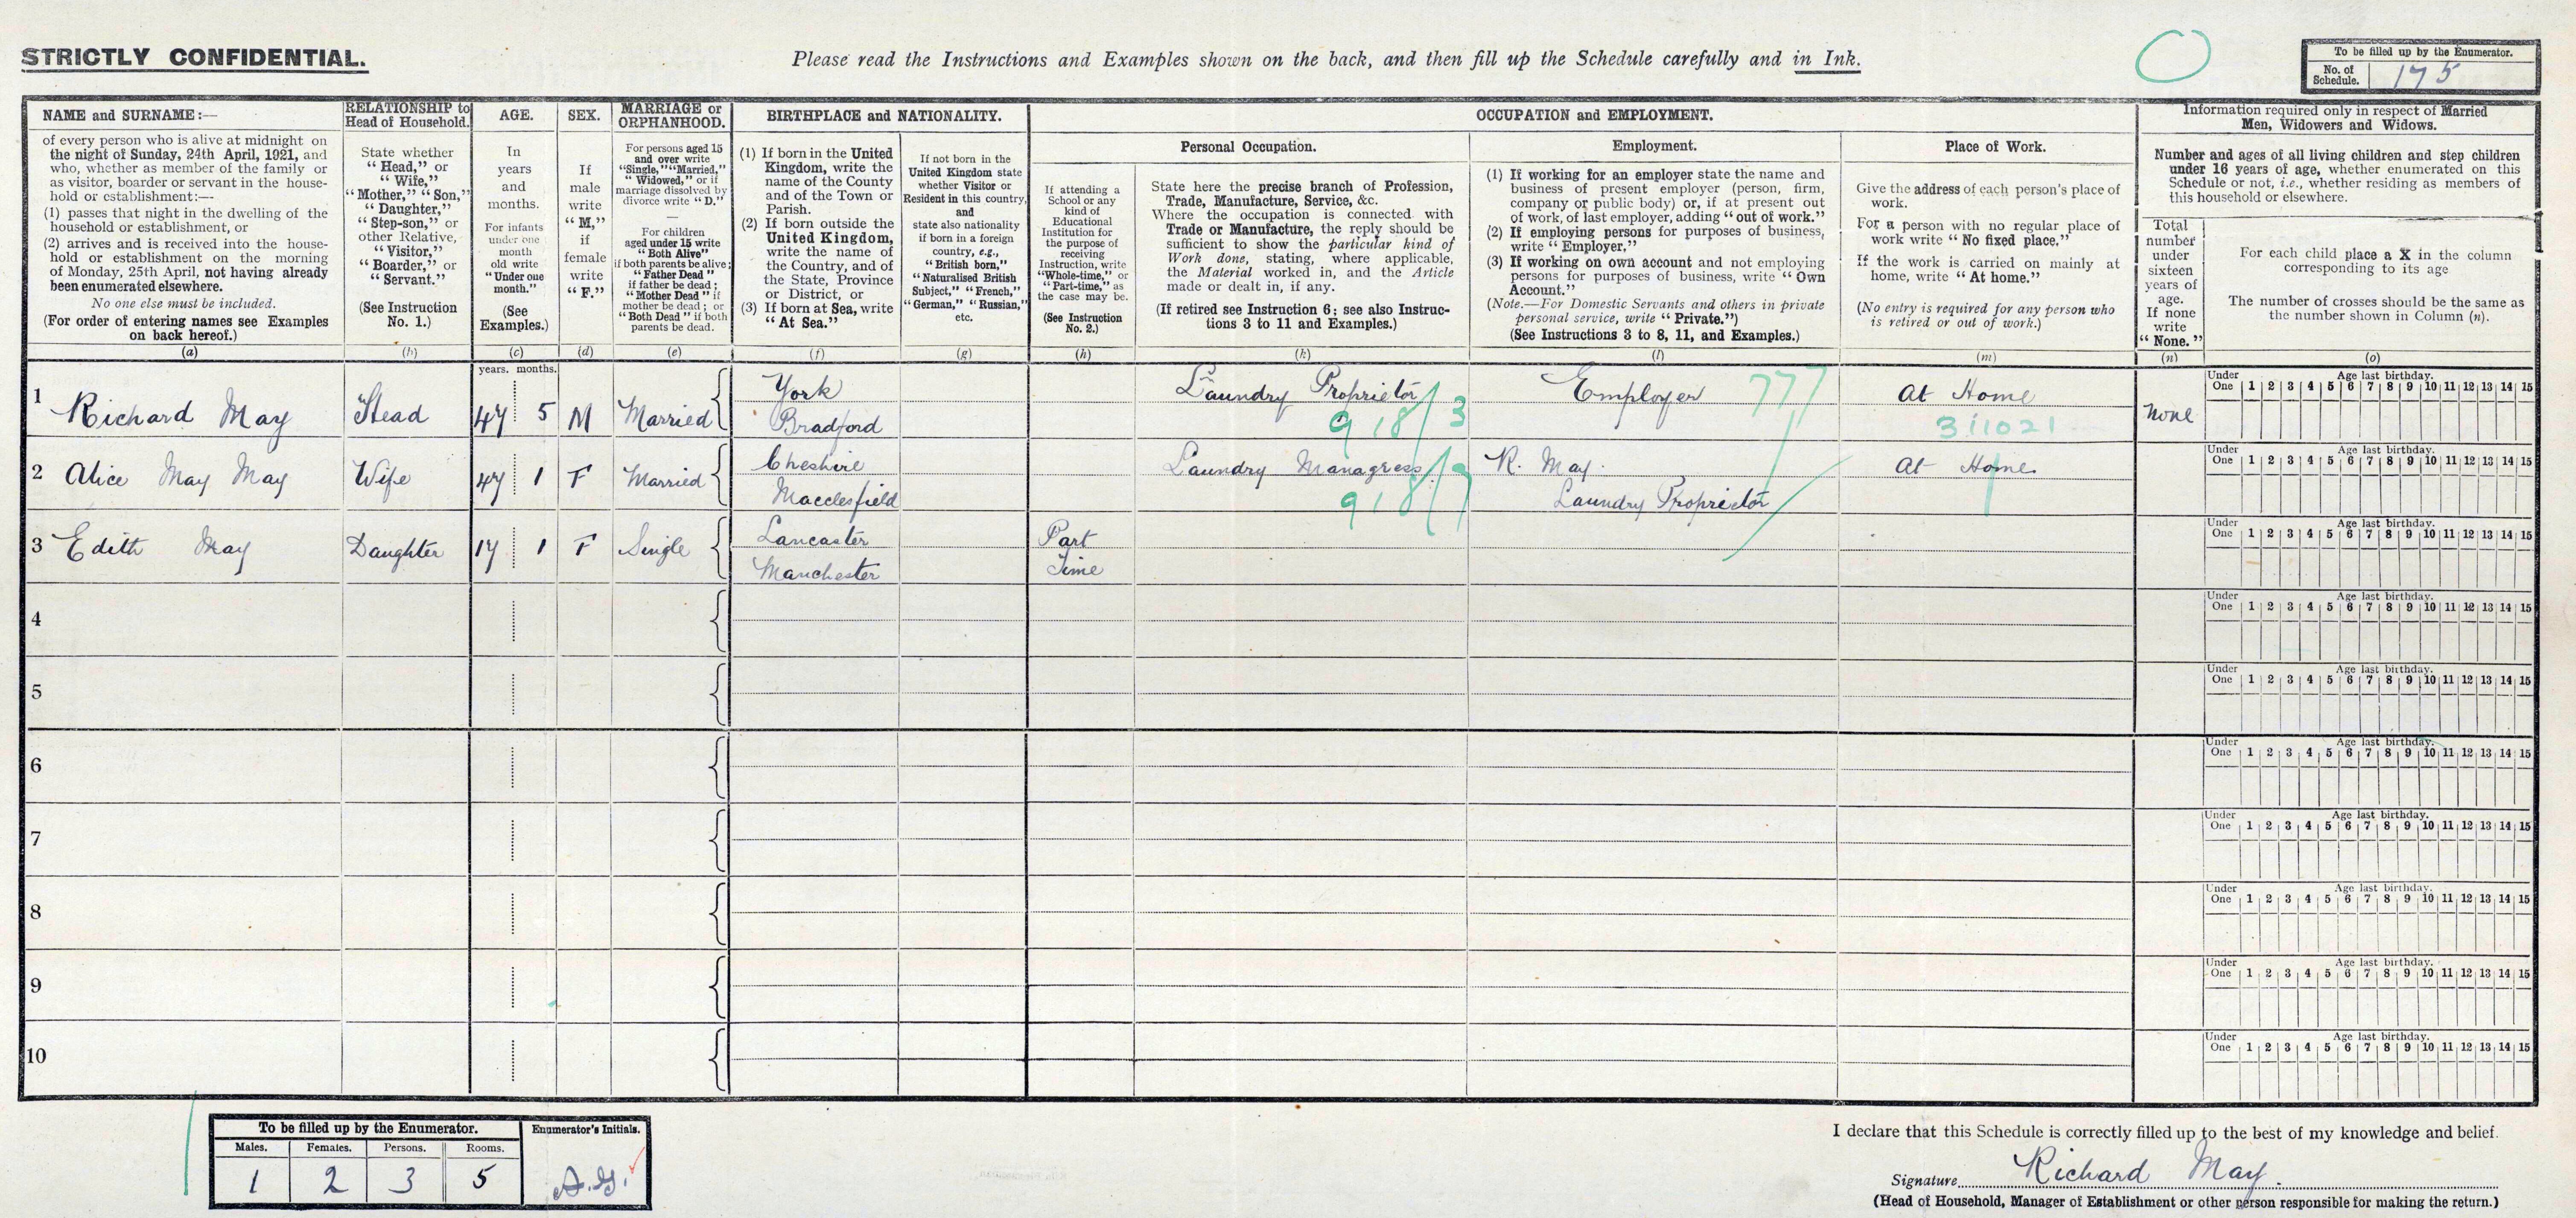 STRICTLY CONFIDENTIAL.
Please read the Instructions and Examples shown on the back, and then fill up the Schedule carefully and in Ink.
To be filled up by the Enumerator.
No. of Schedule. 175
NAME and SURNAME:—
of every person who is alive at midnight on
the night of Sunday, 24th April, 1921, and
who, whether as member of the family or
as visitor, boarder or servant in the house-
hold or establishment:—
(1) passes that night in the dwelling of the
household or establishment, or
(2) arrives and is received into the house-
hold or establishment on the morning
of Monday, 25th April, not having already
been enumerated elsewhere.
No one else must be included.
(For order of entering names see Examples
on back hereof.)
(a)
RELATIONSHIP to
Head of Household.
State whether
"Head," or
"Wife,"
"Mother," "Son,"
"Daughter,"
"Step-son," or
other Relative,
"Visitor,"
"Boarder," or
"Servant."
(See Instruction
No. 1.)
(b)
AGE.
In
years
and
months.
For infants
under one
month
old write
"Under one
month."
(See
Examples.)
(c)
SEX.
If
male
write
"M,"
if
female
write
"F."
(d)
MARRIAGE or
ORPHANHOOD.
For persons aged 15
and over write
"Single," "Married,"
"Widowed," or if
marriage dissolved by
divorce write "D."
—
For children
aged under 15 write
"Both Alive"
if both parents be alive;
"Father Dead"
if father be dead;
"Mother Dead" if
mother be dead; or
"Both Dead" if both
parents be dead.
(e)
BIRTHPLACE and NATIONALITY.
(1) If born in the United
Kingdom, write the
name of the County
and of the Town or
Parish.
(2) If born outside the
United Kingdom,
write the name of
the Country, and of
the State, Province
or District, or
(3) If born at Sea, write
"At Sea."
(f)
If not born in the
United Kingdom state
whether Visitor or
Resident in this country,
and
state also nationality
if born in a foreign
country, e.g.,
"British born,"
"Naturalised British
Subject," "French,"
"German," "Russian,"
etc.
(g)
OCCUPATION and EMPLOYMENT.
If attending a
School or any
kind of
Educational
Institution for
the purpose of
receiving
Instruction, write
"Whole-time," or
"Part-time," as
the case may be.
(See Instruction
No. 2.)
(h)
Personal Occupation.
State here the precise branch of Profession,
Trade, Manufacture, Service, &c.
Where the occupation is connected with
Trade or Manufacture, the reply should be
sufficient to show the particular kind of
Work done, stating, where applicable,
the Material worked in, and the Article
made or dealt in, if any.
(If retired see Instruction 6; see also Instruc-
tions 3 to 11 and Examples.)
(k)
Employment.
(1) If working for an employer state the name and
business of present employer (person, firm,
company or public body) or, if at present out
of work, of last employer, adding "out of work."
(2) If employing persons for purposes of business,
write "Employer."
(3) If working on own account and not employing
persons for purposes of business, write "Own
Account."
(Note.—For Domestic Servants and others in private
personal service, write "Private.")
(See Instructions 3 to 8, 11, and Examples.)
(l)
Place of Work.
Give the address of each person's place of
work.
For a person with no regular place of
work write "No fixed place."
If the work is carried on mainly at
home, write "At home."
(No entry is required for any person who
is retired or out of work.)
(m)
Information required only in respect of Married
Men, Widowers and Widows.
Number and ages of all living children and step children
under 16 years of age, whether enumerated on this
Schedule or not, i.e., whether residing as members of
this household or elsewhere.
Total
number
under
sixteen
years of
age.
If none
write
"None."
(n)
For each child place a X in the column
corresponding to its age
The number of crosses should be the same as
the number shown in Column (n).
(o)
years. months.
1 Richard May Head 47 5 M Married York Bradford Laundry Proprietor 918/3 Employer 777 At Home 311021 None
Under One Age last birthday. 1 2 3 4 5 6 7 8 9 10 11 12 13 14 15
2 Alice May May Wife 47 1 F Married Cheshire Macclesfield Laundry Manageress 918/9 R. May. Laundry Proprietor At Home
Under One Age last birthday. 1 2 3 4 5 6 7 8 9 10 11 12 13 14 15
3 Edith May Daughter 17 1 F Single Lancaster Manchester Part Time
Under One Age last birthday. 1 2 3 4 5 6 7 8 9 10 11 12 13 14 15
4
Under One Age last birthday. 1 2 3 4 5 6 7 8 9 10 11 12 13 14 15
5
Under One Age last birthday. 1 2 3 4 5 6 7 8 9 10 11 12 13 14 15
6
Under One Age last birthday. 1 2 3 4 5 6 7 8 9 10 11 12 13 14 15
7
Under One Age last birthday. 1 2 3 4 5 6 7 8 9 10 11 12 13 14 15
8
Under One Age last birthday. 1 2 3 4 5 6 7 8 9 10 11 12 13 14 15
9
Under One Age last birthday. 1 2 3 4 5 6 7 8 9 10 11 12 13 14 15
10
Under One Age last birthday. 1 2 3 4 5 6 7 8 9 10 11 12 13 14 15
To be filled up by the Enumerator.
Males. Females. Persons. Rooms.
1 2 3 5
Enumerator's Initials.
A.G.
I declare that this Schedule is correctly filled up to the best of my knowledge and belief.
Signature Richard May.
(Head of Household, Manager of Establishment or other person responsible for making the return.)